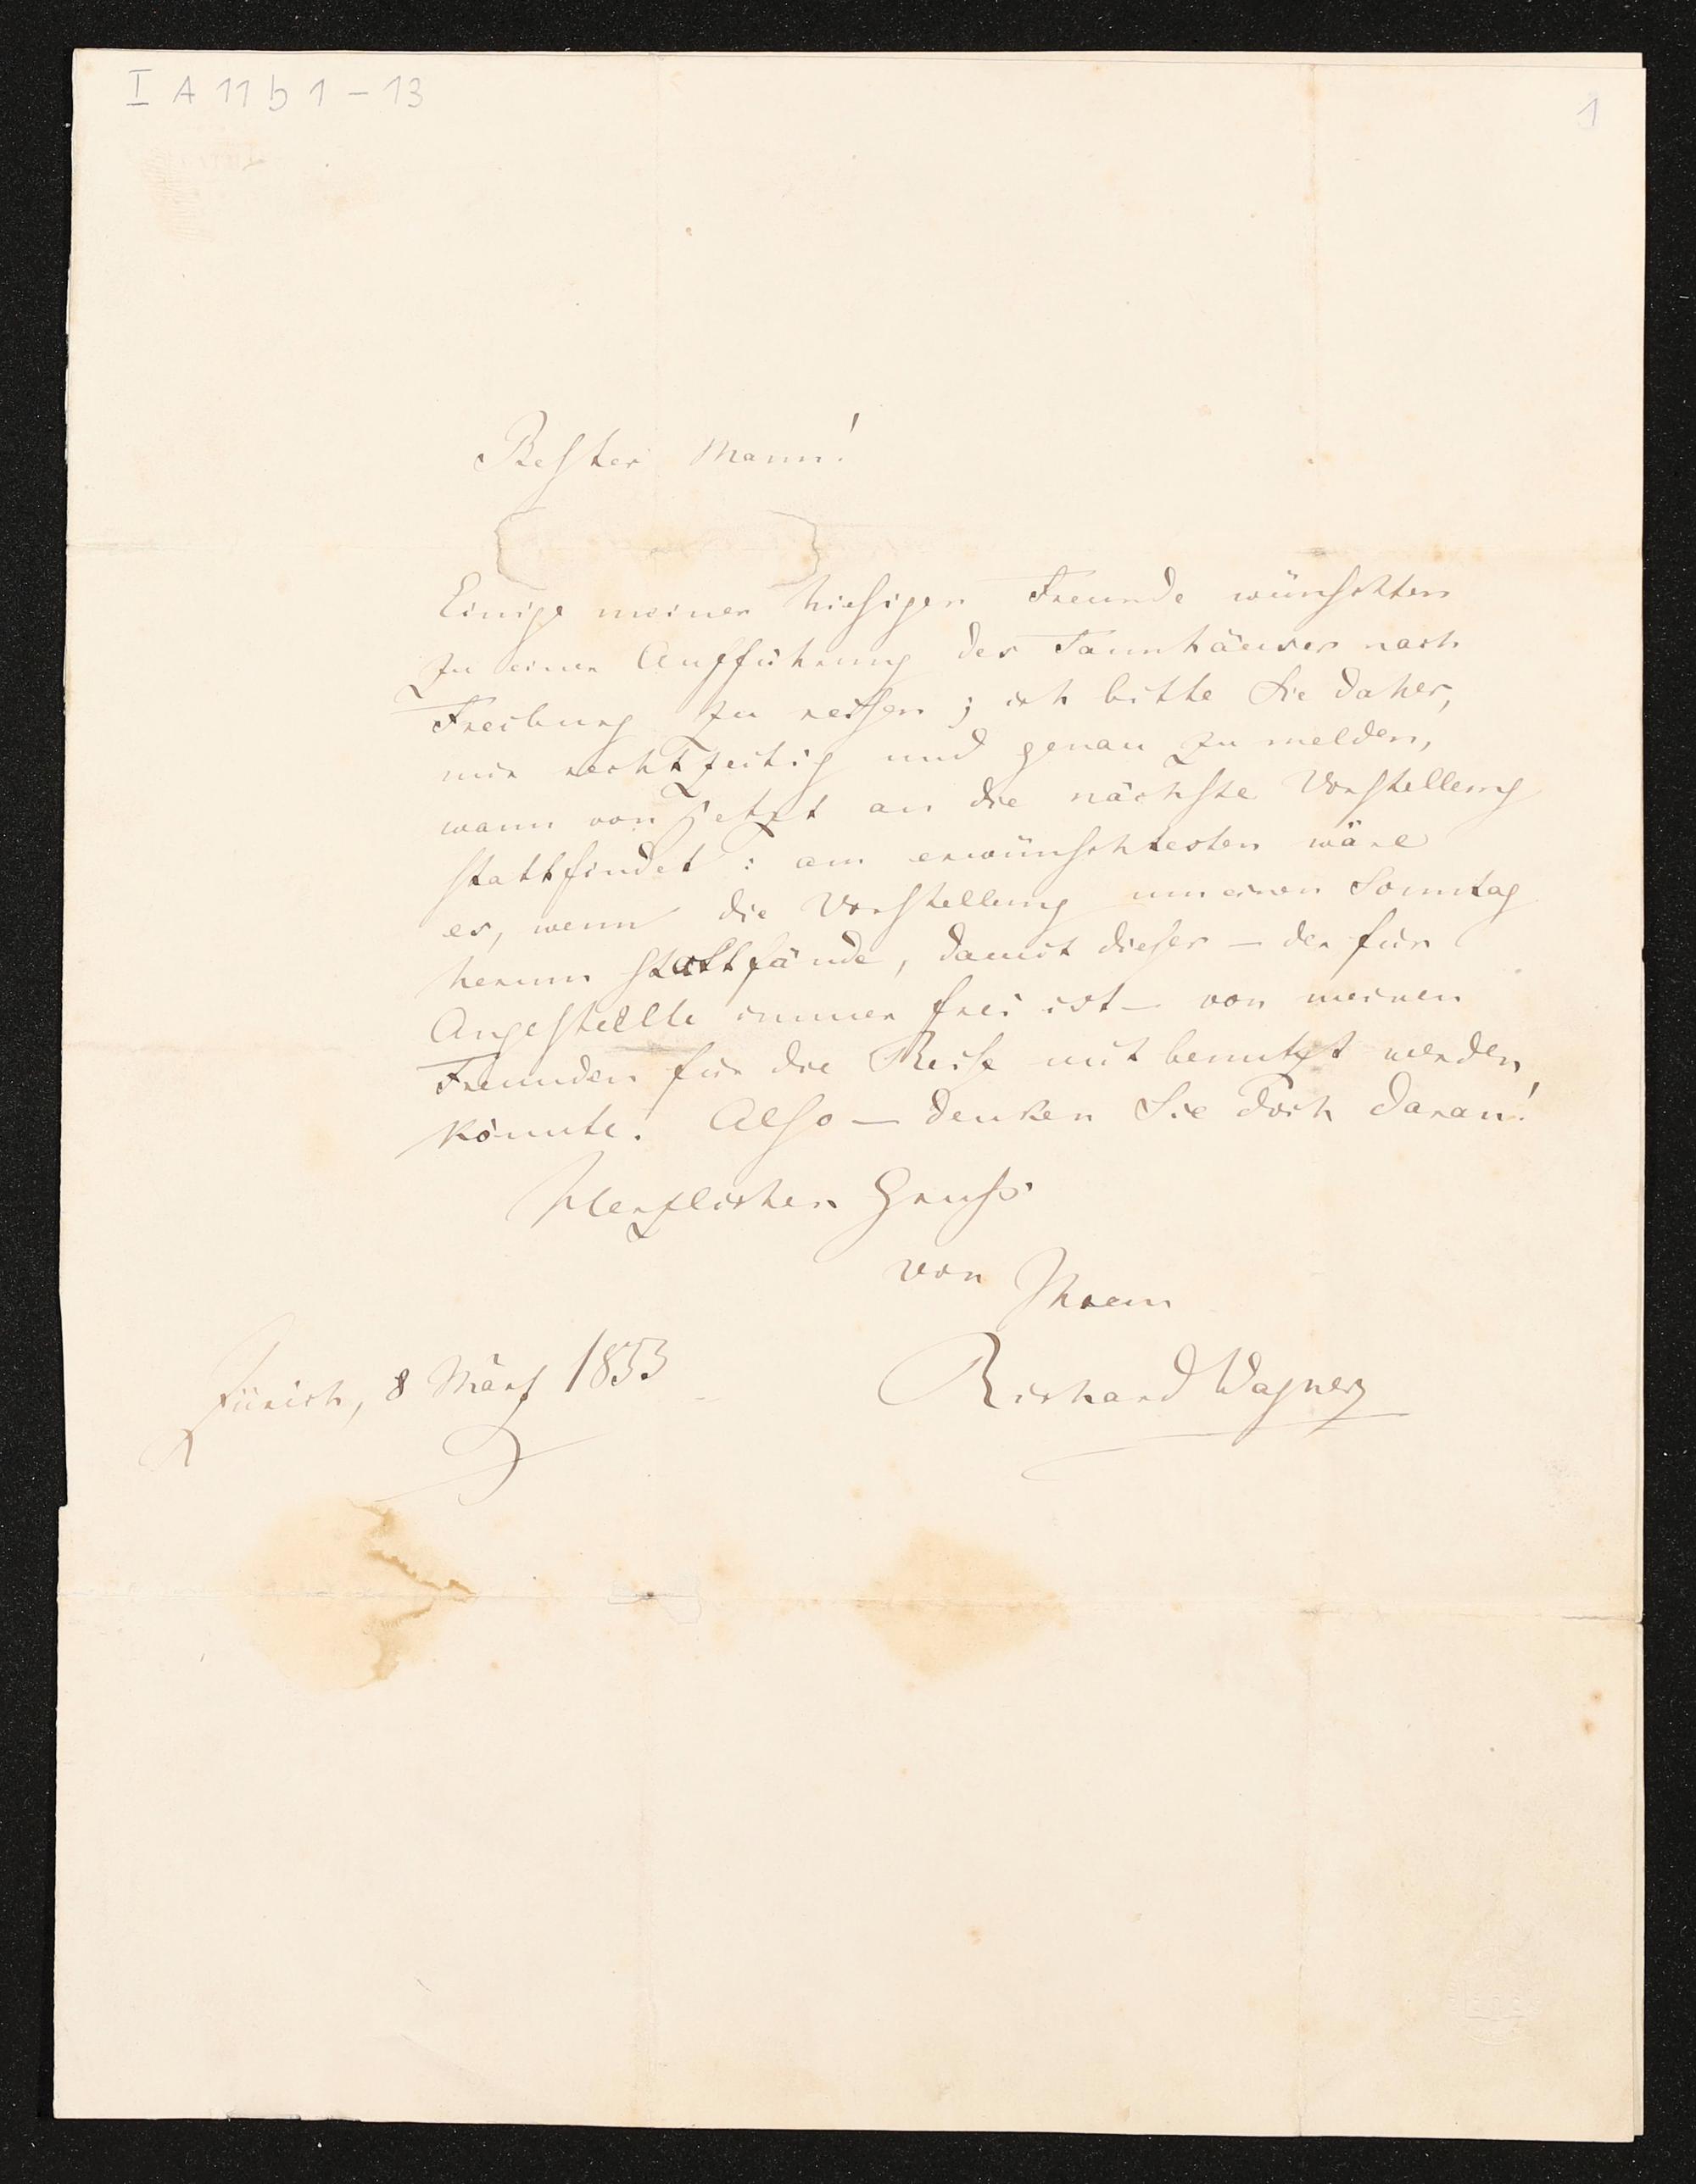 I A 11 b 1 – 13
1
Bester Mann!
Einige meiner hiesigen Freunde wünschten
zu einer Aufführung des Tannhäuser nach
Freiburg zu reisen; ich bitte Sie daher,
mir rechtzeitig und genau zu melden,
wann von jetzt an die nächste Vorstellung
stattfindet: am erwünschtesten wäre
es, wenn die Vorstellung um einen Sonntag
herum stattfände, damit dieser – der für
Angestellte immer frei ist – von meinen
Freunden für die Reise mit benutzt werden
könnte. Also – denken Sie doch daran!
Herzlichen Gruss
von Ihrem
Richard Wagner
Zürich, 8 März 1853